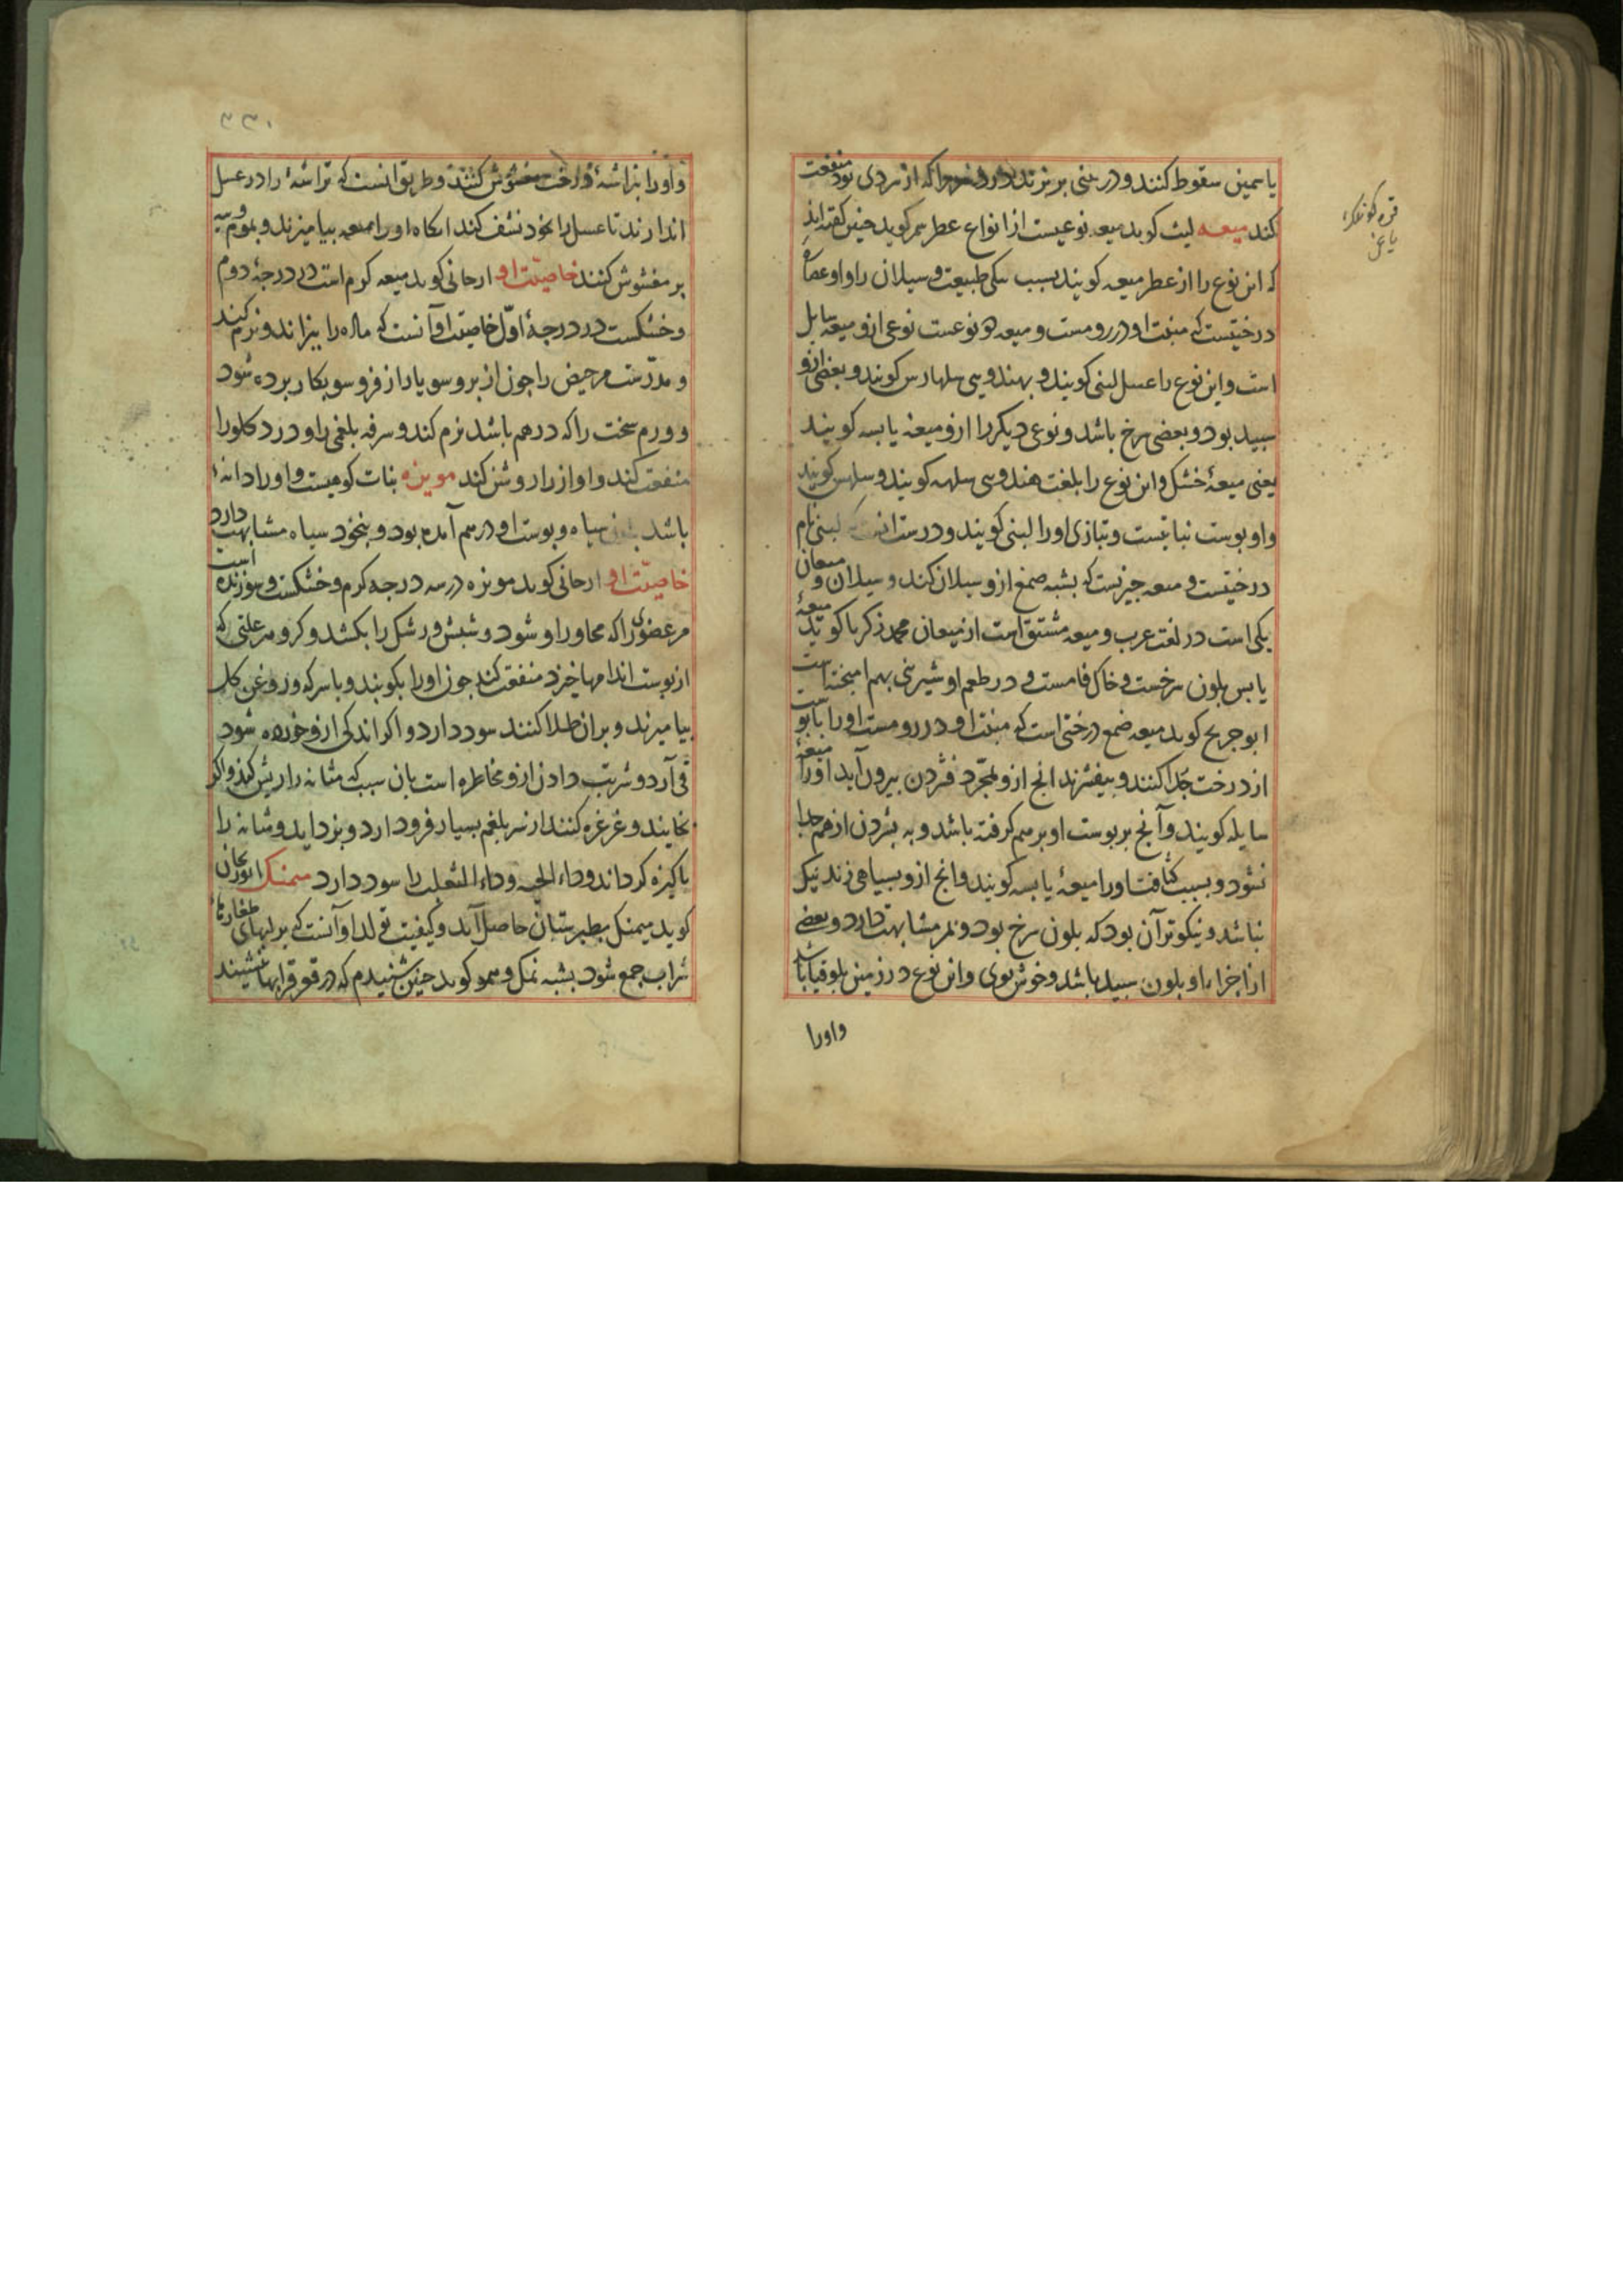 یاسمین سقوط کنند و در بینی بریزند درد سر را که از سردی بود منفعت
کند میعه لیث کوید میعه نوعیست از انواع عطر کوید چنین کفته اند
که این نوع را از عطر میعه کویند بسبب طبیعت و سیلان را و او
درختیست که منبت او در رومست و میعه دو نوعست نوعی ازو میعه سایل
است و این نوع را عسل لبنی کویند و بهندوی سلهارس کویند و بعضی ازو
سبید بود و بعضی سرخ باشد و نوعی دیکر را ازو میعه یابسه کویند
یعنی میعهٔ خشک و این نوع را بلغت هندوی سلهه کویند و سلهس کویند
و او بوست نباتیست و بتازی او را لبنی کویند و درست آنست که لبنی نام
درختیست و میعه جیزیست که بشبه صمغ ازو سیلان کند و سیلان و میعان
یکی است در لغت عرب و میعه مشتق است از میعان محمد زکریا کوید میعهٔ
یابس بلون سرخست و خاک فامست و در طعم او شیرینی بهم امیخته است
ابو جریح کوید میعه صمغ درختی است که منبت او در رومست او را
از درخت جدا کنند و بیفشرند انج ازو بمجرد فشردن بیرون آید او را میعهٔ
سایله کویند و آنج بر بوست او بر هم کرفته باشد و به بشردن از هم جدا
نشود و بسبب کثافت او را میعهٔ یابسه کویند و انج ازو بسیاهی زند نیک
نباشد و نیکوتر آن بود که بلون سرخ بود و بمر مشابهت دارد و بعضی
از اجزاء او بلون سبید باشد و خوش بوی و این نوع در زمین باشد
و او را
و او را بتراشهٔ درخت مغشوش کنند و طریق آنست که تراشهٔ را در عسل
اندازند تا عسل را بخود نشف کند انکاه او را با میعه بیامیزند و بموم و
بر مغشوش کنند خاصیّت او ارجانی کوید میعه کرم است در درجهٔ دوم
و خشکست در درجهٔ اوّل خاصیت او آنست که ماده را بپزاند و نرم کند
و مدرّست مر حیض را جون از بر و سو یا از فرو سو بکار برده شود
و ورم سخت را که در هم باشد نرم کند و سرفه بلغمی را و درد کلو را
منفعت کند و اواز را روشن کند مویزه نبات کوهیست و او را دانهٔ
باشد بلون سیاه و بوست او در هم آمده بود و بنخود سیاه مشابهت دارد
خاصیّت او ارجانی کوید مویزه در سه درجه کرم و خشکست و سوزنده است
مر عضوی را که مجاور او شود و شبش و رشک را بکشد و کر و هر علتی که
از بوست اندامها خیزد منفعت کند جون او را بکوبند و با سرکه و روغن کل
بیامیزند و بران طلا کنند سود دارد و اکر اندکی ازو خورده شود
قی آرد و شربت دادن ازو مخاطره است بان سبب که مثانه را ریش کند و اکر
بخایند و غرغره کنند از سر بلغم بسیار فرود ارد و بزداید و مثانه را
باکیزه کرداند و داء الحیه و داء الثعلب را سود دارد میمنک ابو ریحان
کوید میمنک بطبرستان حاصل آید و کیفیت تولد او آنست که بر لبهای
شراب جمع شود بشبه نمک و همو کوید جنین شنیدم که در قعر قرابها نشیند